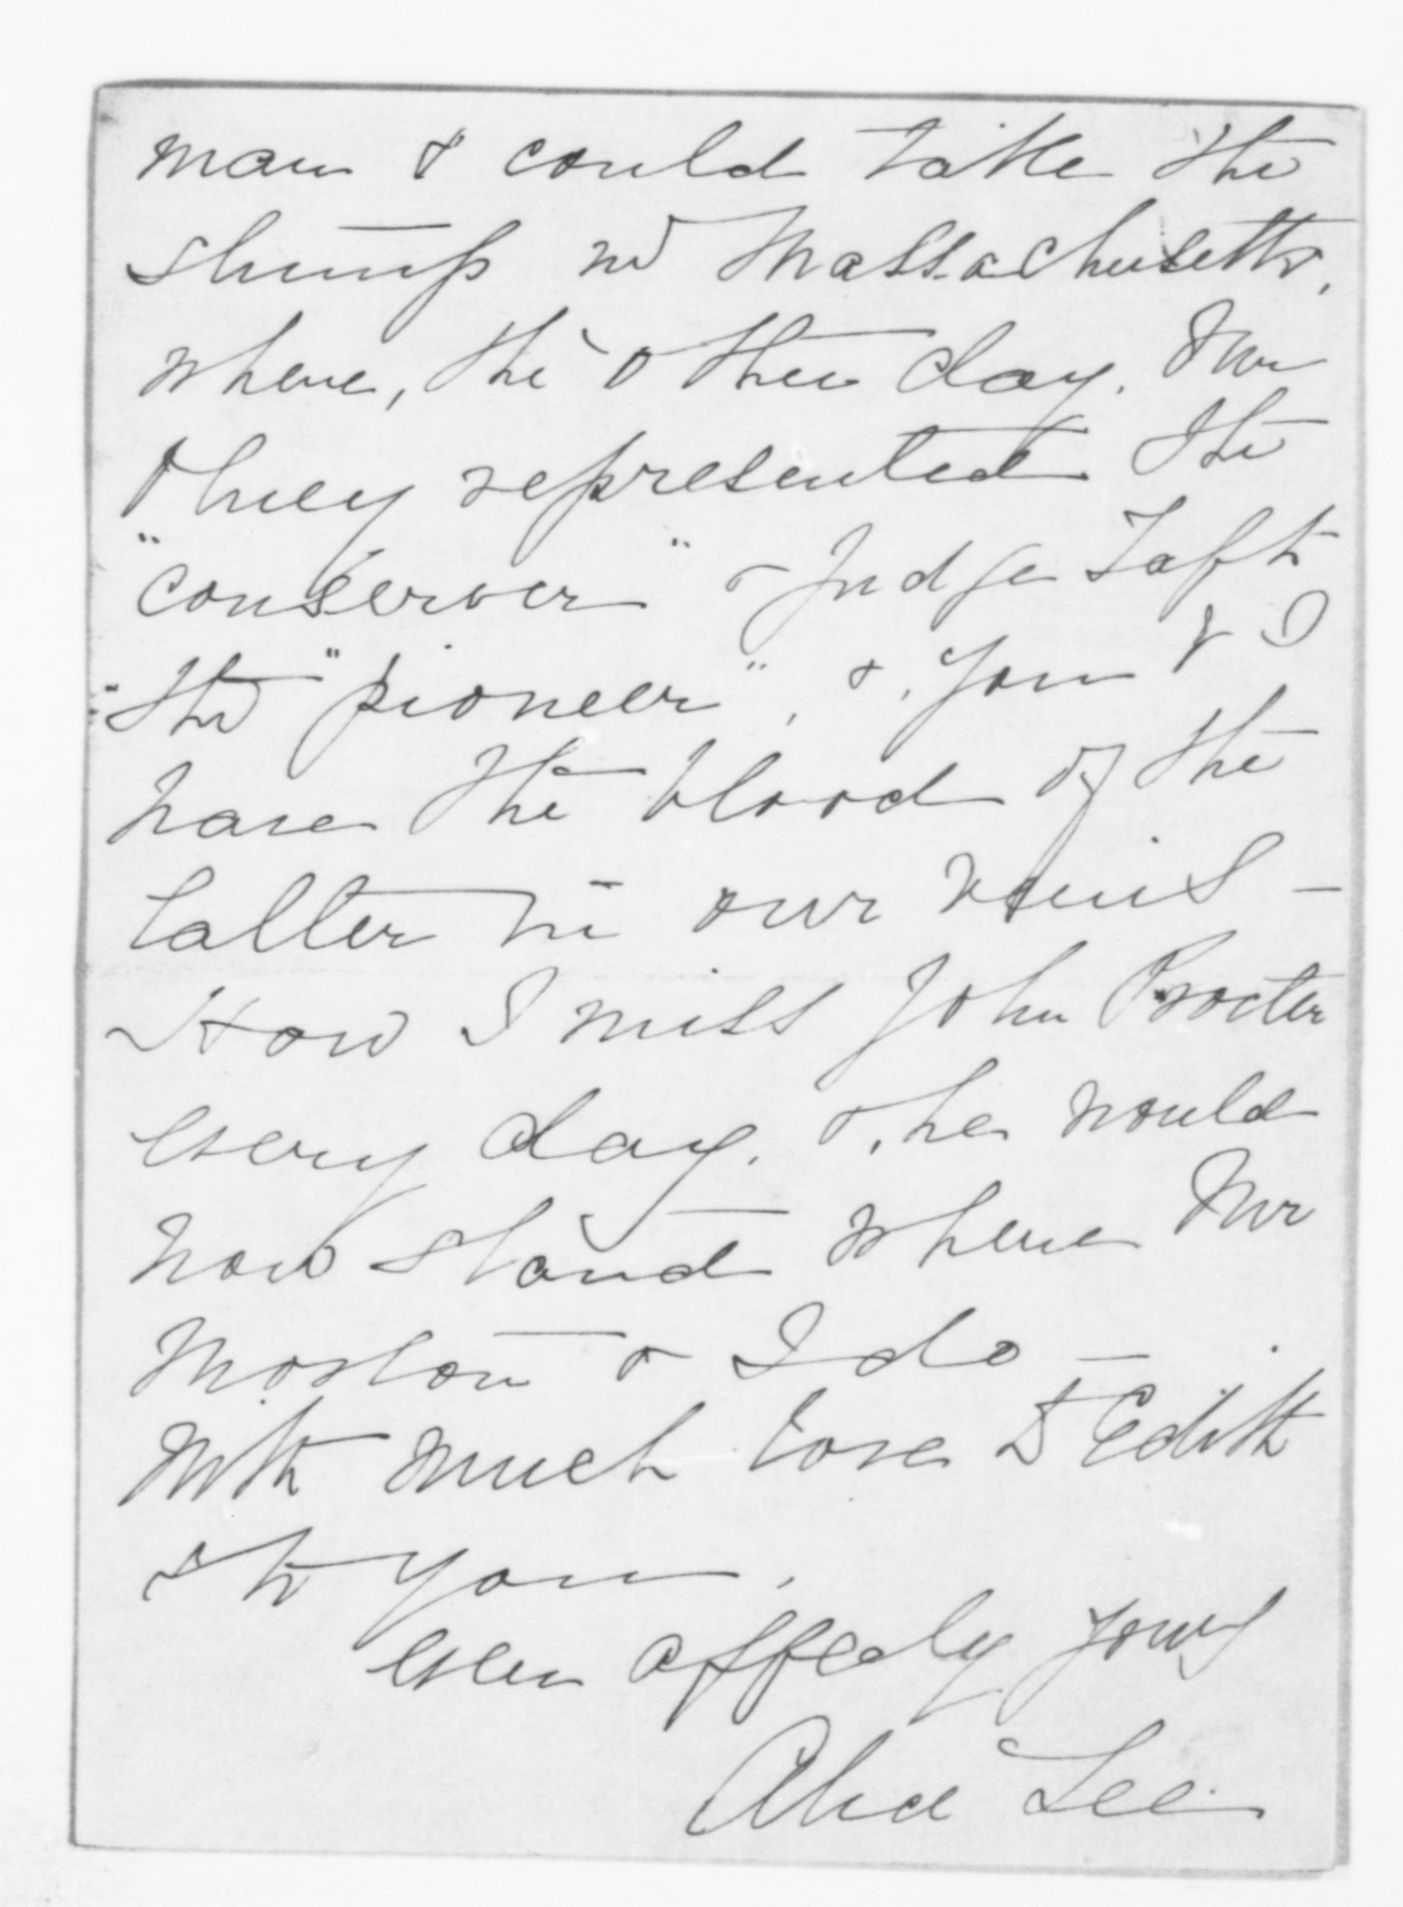 man & could take the
stump in Massachusetts,
where, the other day, Mr
Olney represented the
"conserver" & Judge Taft
the "pioneer", & you & I
have the blood of the
latter in our veins –
How I miss John Procter
every day, & he would
now stand where Mr
Morton & I do –
With much love to Edith
& to you,
ever affecly yours
Alice Lee